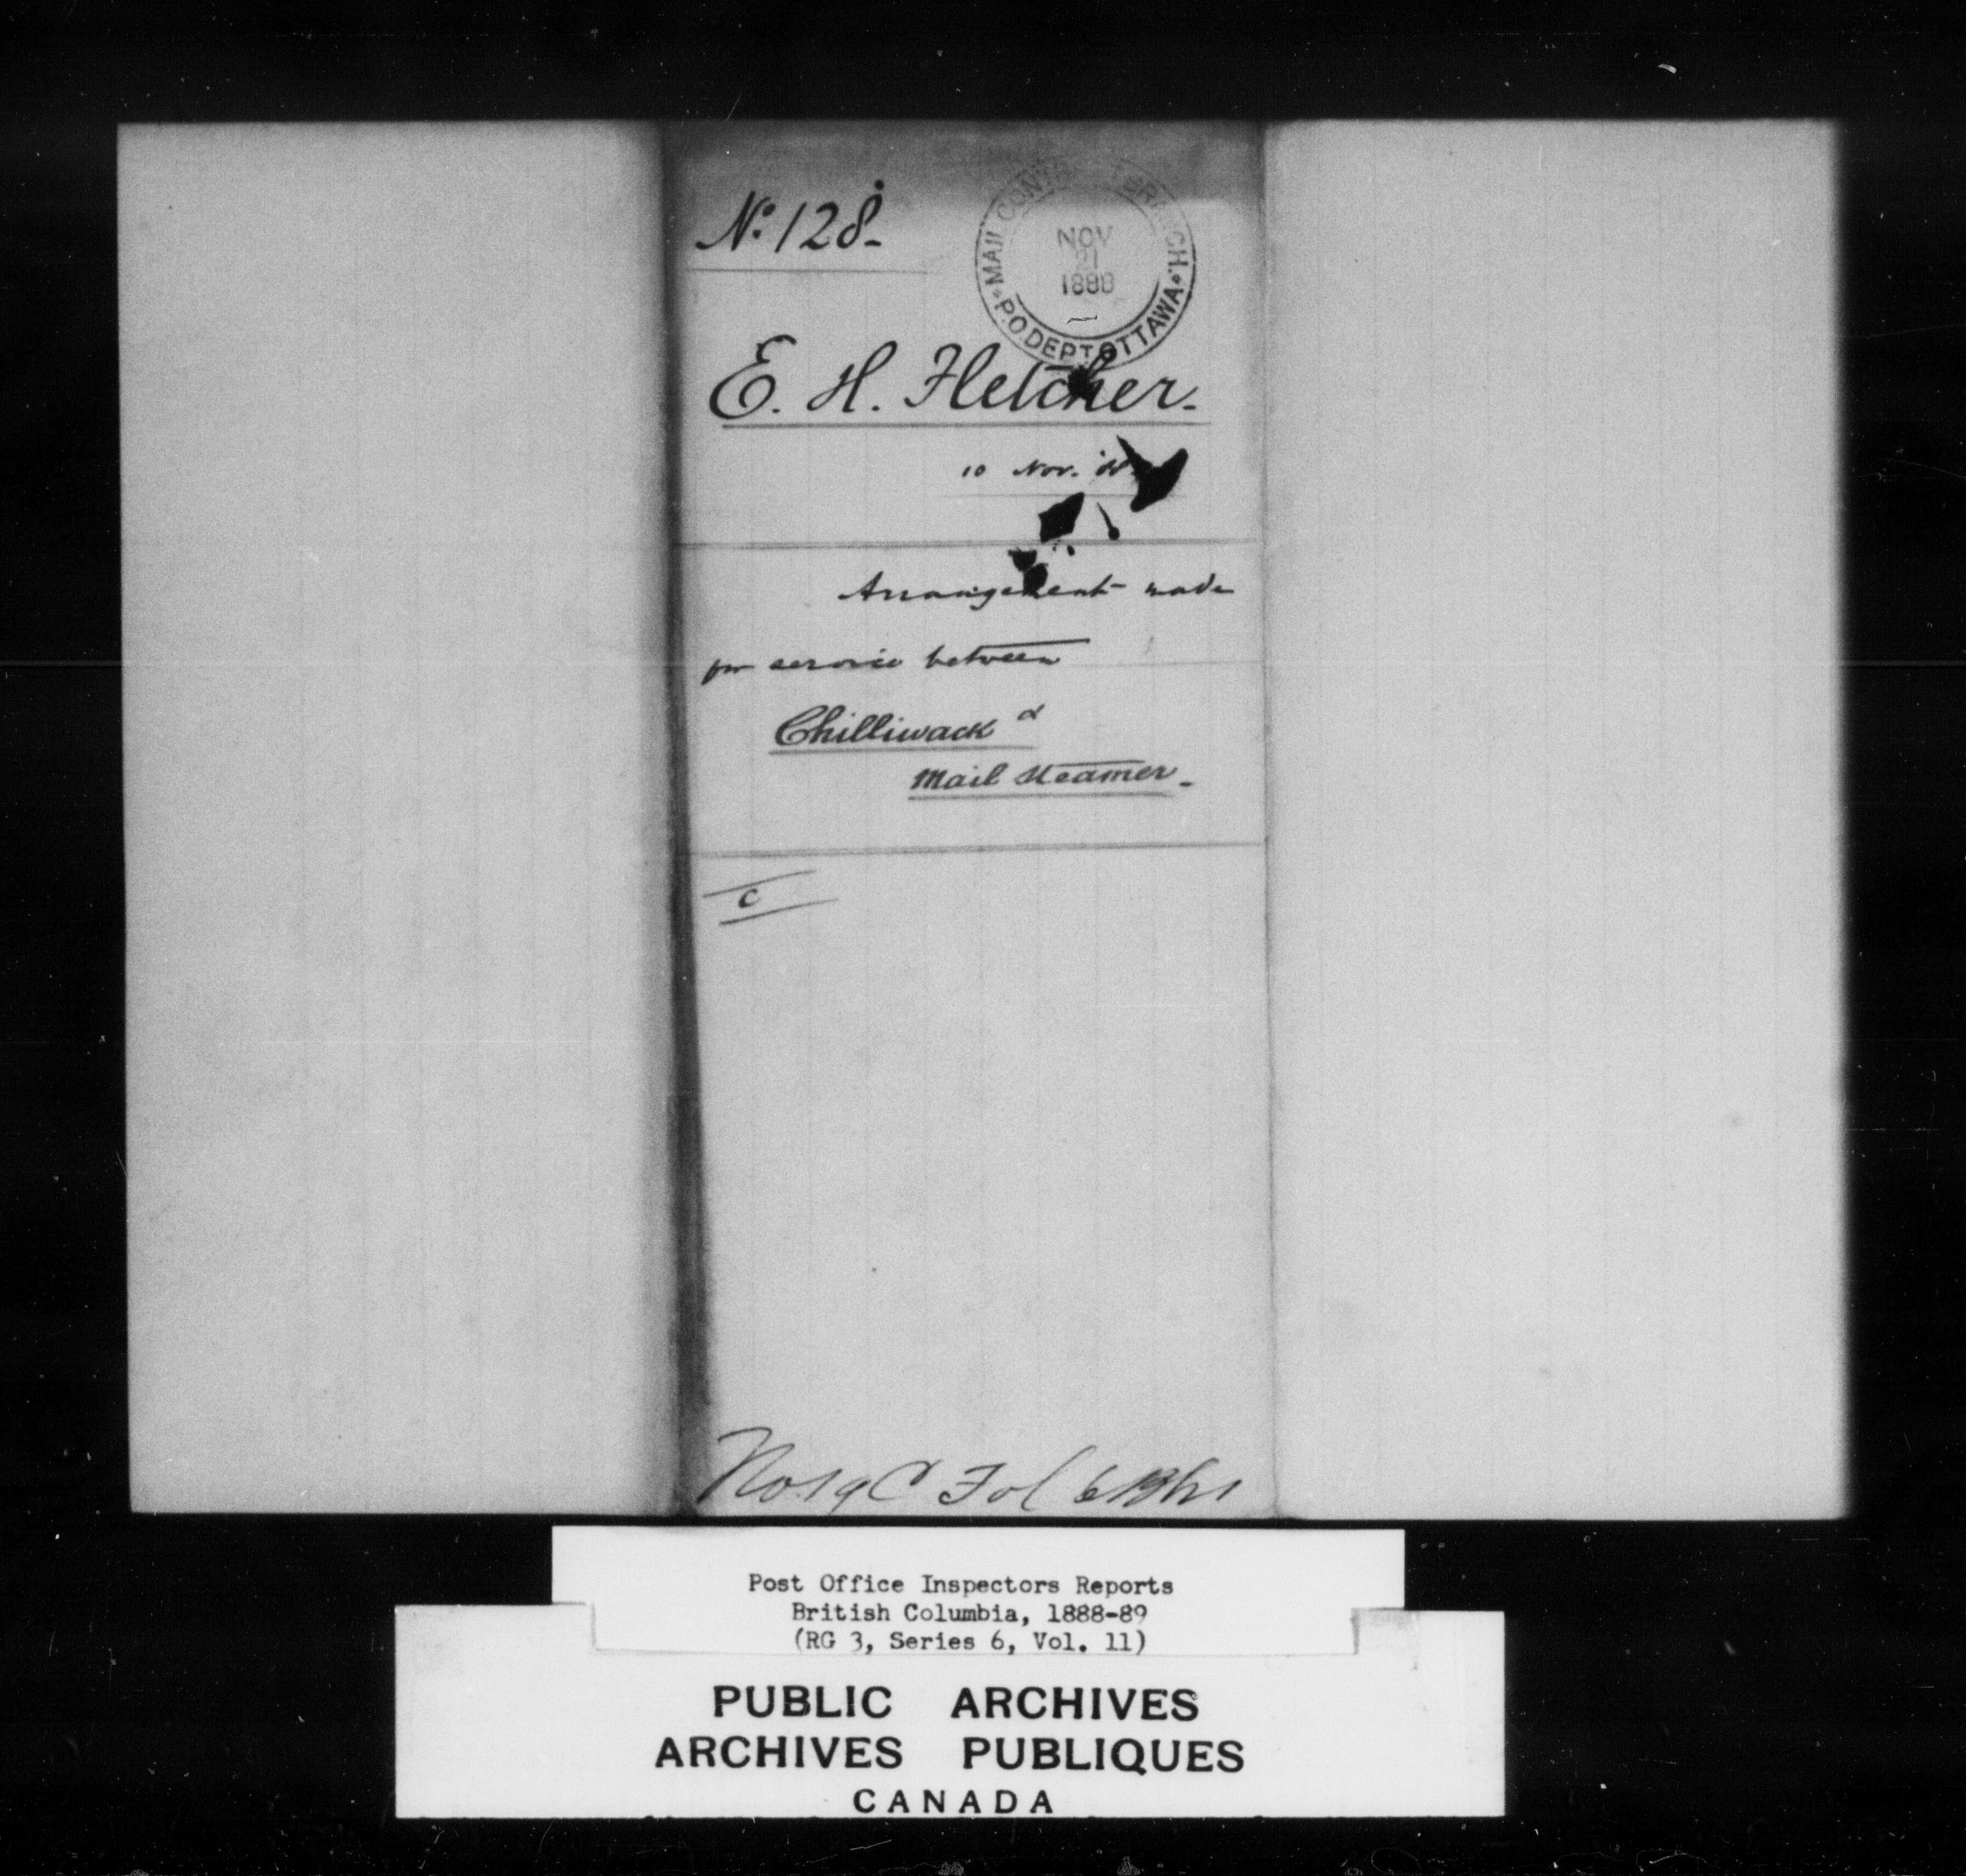 No. 128.
MAIL CONTRACT BRANCH.
NOV
21
1888
P.O. DEPT. OTTAWA
E. H. Fletcher.
10 Nov.
Arrangement made
for service between
Chilliwack &
Mail Steamer.
C
Fol 6
Post Office Inspectors Reports
British Columbia, 1888-89
(RG 3, Series 6, Vol. 11)
PUBLIC ARCHIVES
ARCHIVES PUBLIQUES
CANADA